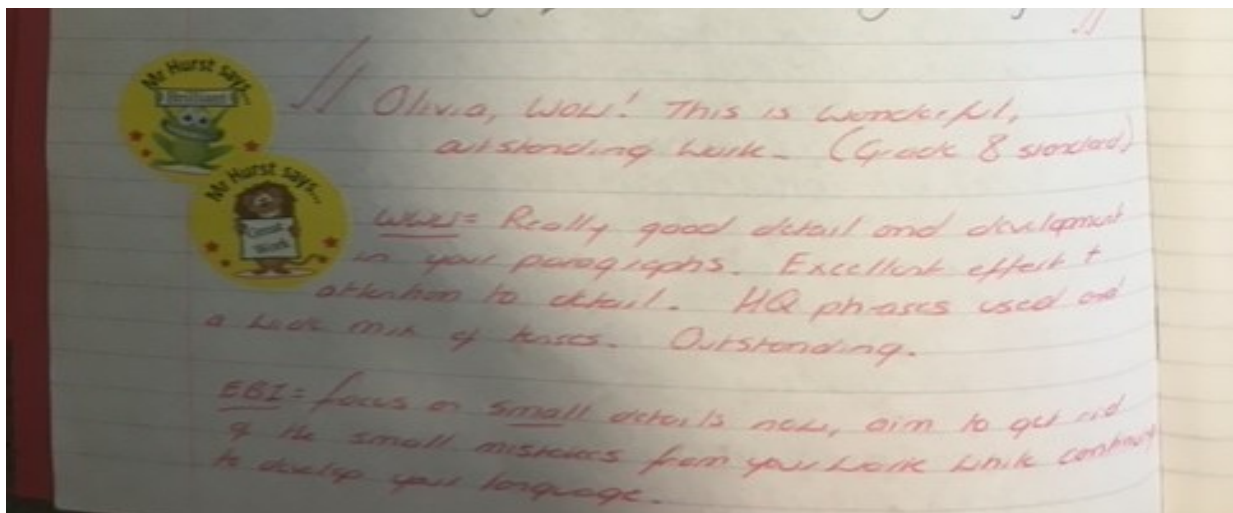 Mr Hurst says...
Brilliant
Olivia, WOW! This is wonderful,
outstanding work. (Grade 8 standard)
Mr Hurst says...
Great
Work
WWW= Really good detail and development
in your paragraphs. Excellent effort +
attention to detail. HQ phrases used and
a wide mix of tenses. Outstanding.
EBI= focus on small details now, aim to get rid
of the small mistakes from your work while continuing
to develop your language.